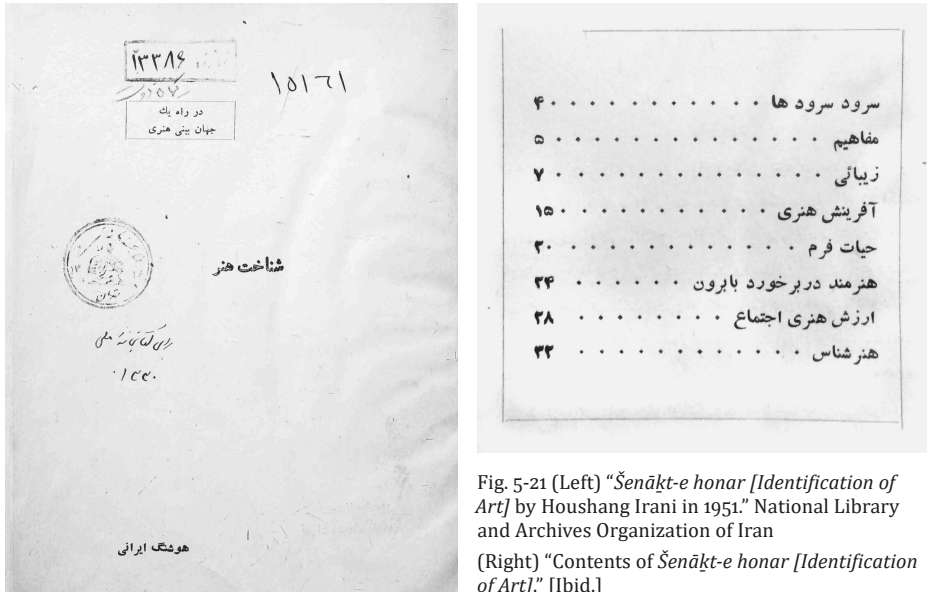 ۱۳۳۸۶
۱۵۱۶۱
در راه یك
جهان بینی هنری
شناخت هنر
برای کتابخانه ملی
۱۳۳۰
هوشنگ ایرانی
سرود سرود ها ۴
مفاهیم ۵
زیبائی ۷
آفرینش هنری ۱۵
حیات فرم ۲۰
هنرمند در برخورد بابرون ۲۴
ارزش هنری اجتماع ۲۸
هنر شناس ۳۲
Fig. 5-21 (Left) “Šenāḵt-e honar [Identification of
Art] by Houshang Irani in 1951.” National Library
and Archives Organization of Iran
(Right) “Contents of Šenāḵt-e honar [Identification
of Art].” [Ibid.]